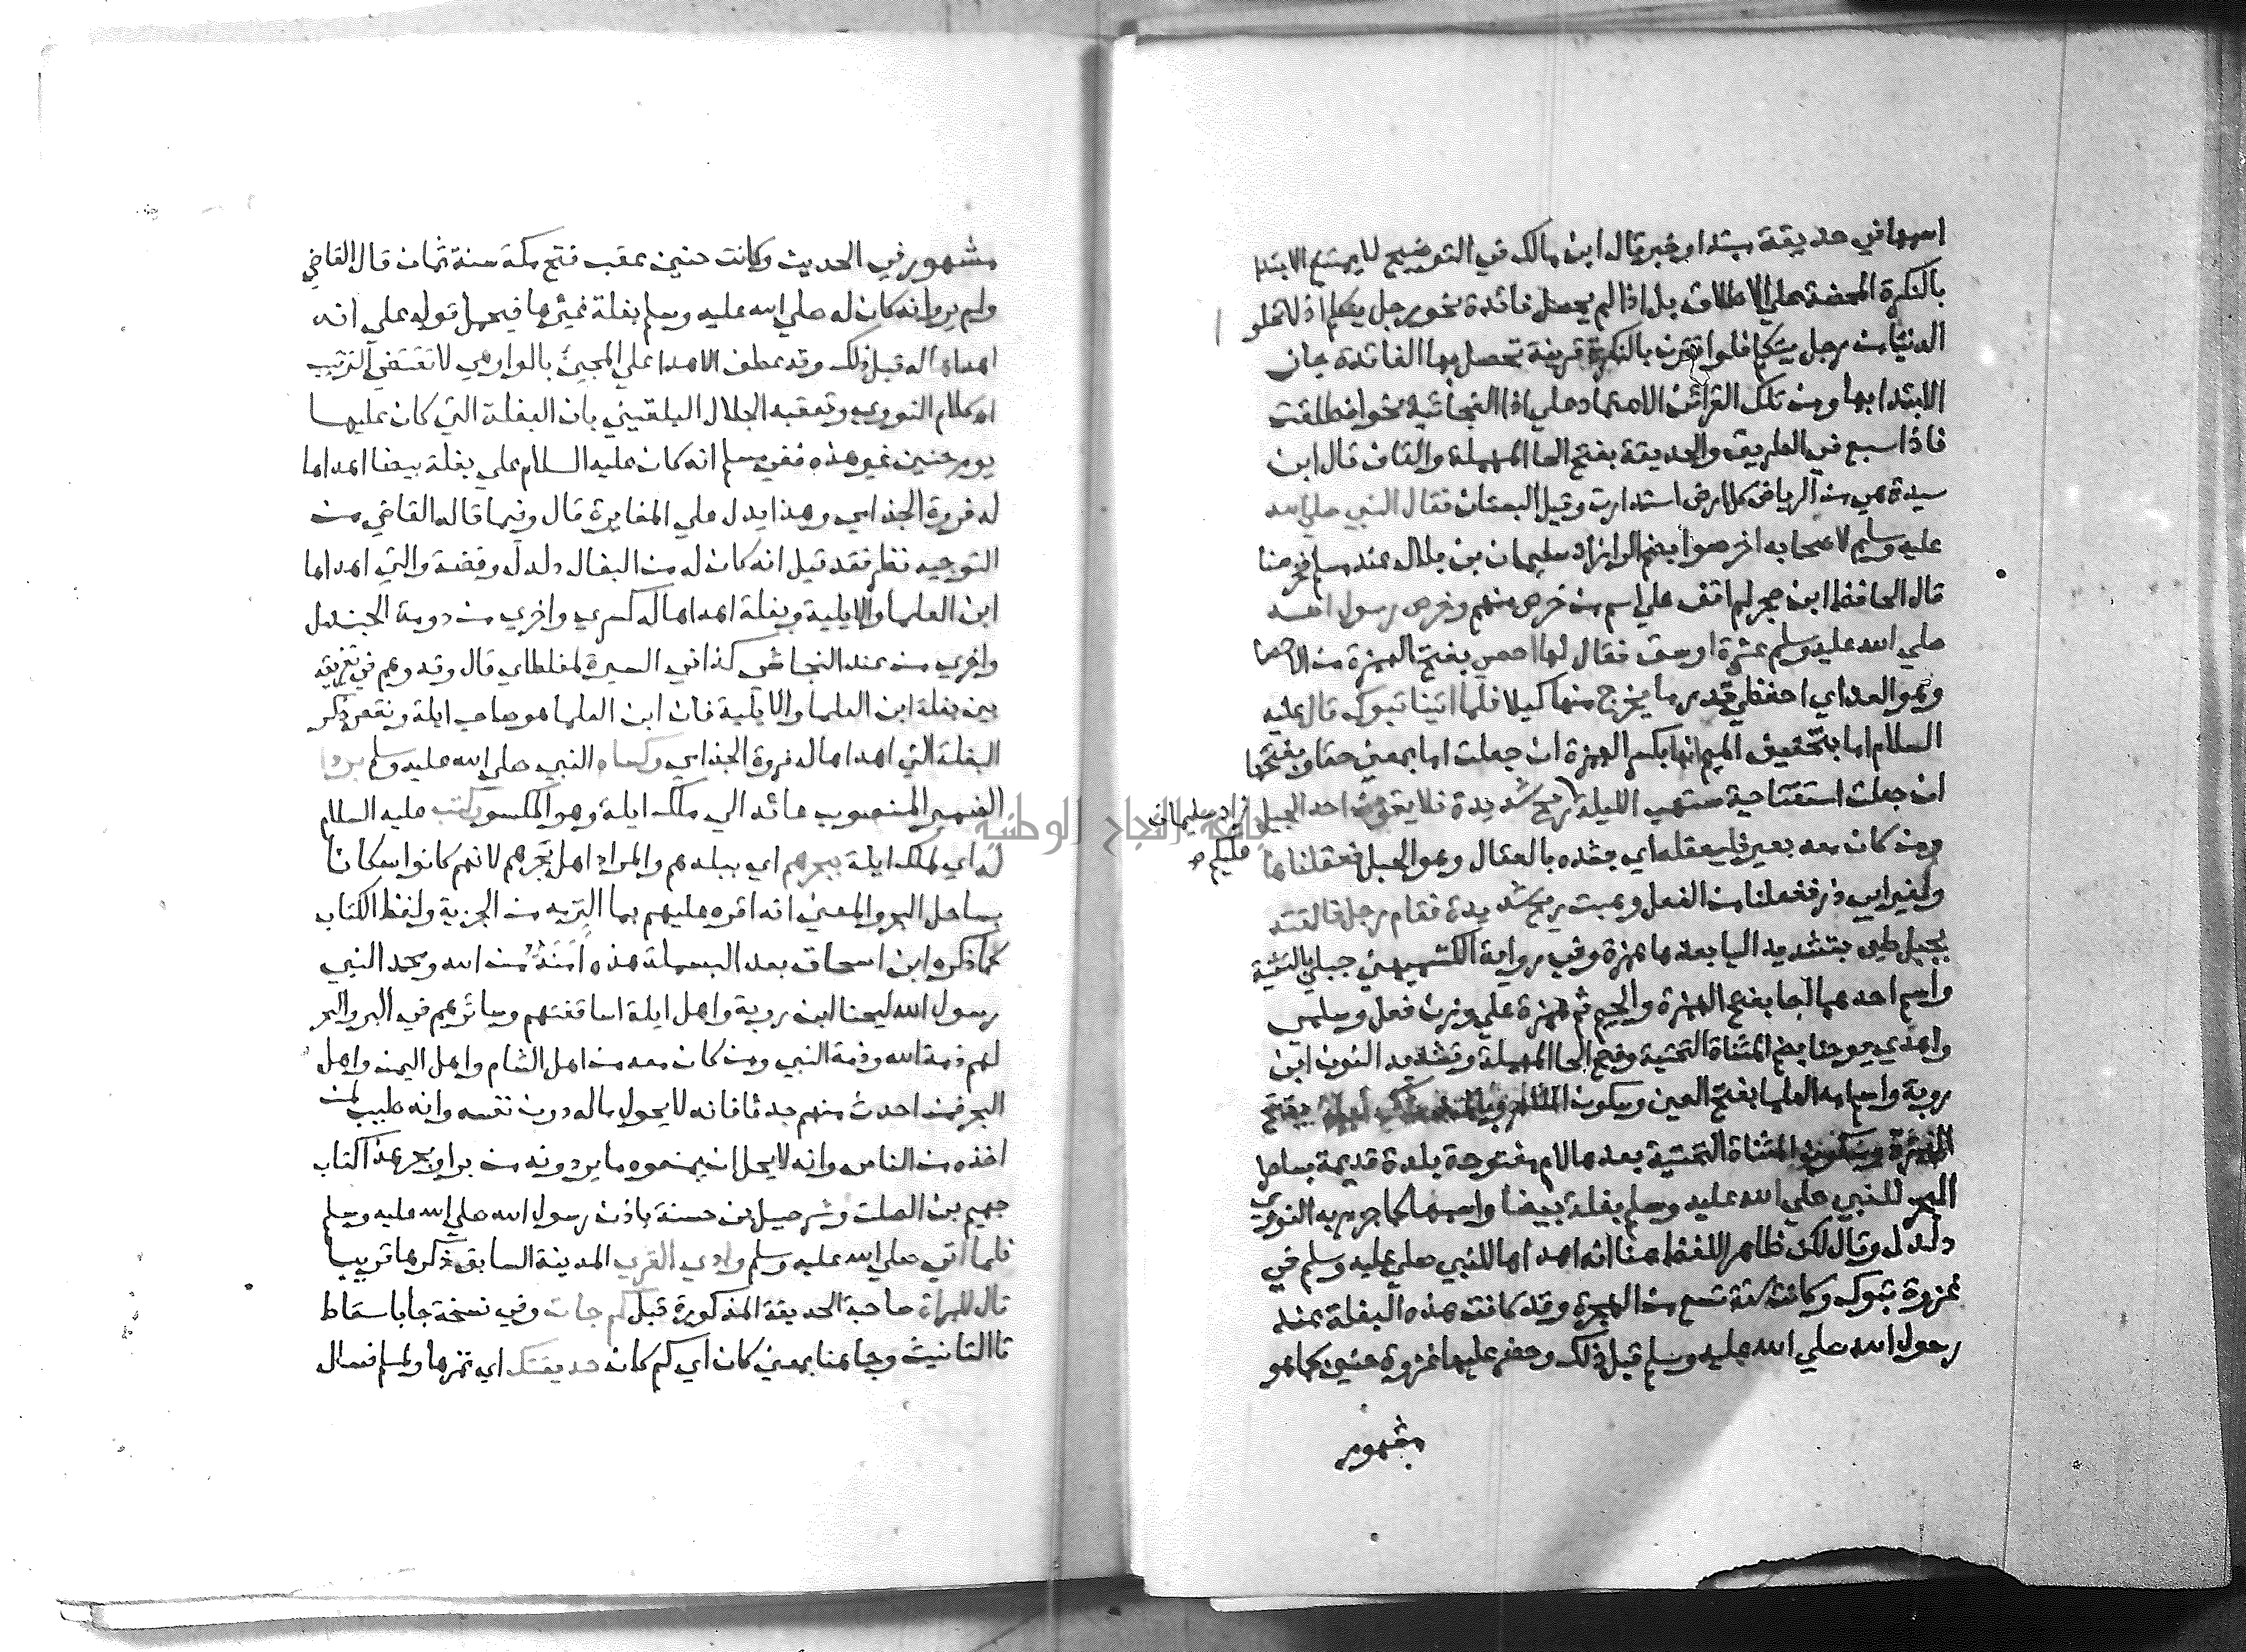 اسمها في حديقة مبتدا وخبر قال ابن مالك في التوضيح لا يمتنع الابتدا
بالنكرة المحضة علي الاطلاق بل اذا لم يحصل فائدة نحو رجل يتكلم اذ لا تخلو
الدنيا من رجل يتكلم فلو اقترن بالنكرة قرينة تحصل بها الفائدة جاز
الابتدا بها ومن تلك القرائن الاعتماد علي اذا الفجائية نحو انطلقت
فاذا سبع في الطريق والحديقة بفتح الحا المهملة والقاف قال ابن
سيدة هي من الرياض كل ارض استدارت وقيل البستان فقال النبي صلي الله
عليه وسلم لاصحابه اخرصوا بضم الرا زاد سليمان بن بلال عند مسلم فخرصنا
قال الحافظ ابن حجر لم اقف علي اسم من خرص منهم وخرص رسول الله
صلي الله عليه وسلم عشرة اوسق فقال لها احصي بفتح الهمزة من الاحصا
وهو العد اي احفظي قدر ما يخرج منها كيلا فلما اتينا تبوك قال عليه
السلام اما بتخفيف الميم انها بكسر الهمزة ان جعلت اما بمعني حقا وبفتحها
ان جعلت استفتاحية ستهب الليلة ريح شديدة فلا يقومن احد
زاد سليمان
عليكم
ومن كان معه بعير فليعقله اي يشده بالعقال وهو الحبل فعقلناها
ولغير ابي ذر ففعلنا من الفعل وهبت ريح شديدة فقام رجل فالقته
بجبل طي بتشديد اليا بعدها همزة وفي رواية الكشميهني جبلي بالتثنية
واسم احدهما اجا بفتح الهمزة والجيم ثم همزة علي وزن فعل وسلمي
واهدي يوحنا بضم المثناة التحتية وفتح الحا المهملة وتشديد النون ابن
روبة واسم امه العلما بفتح العين وسكون اللام
الهمزة وسكون المثناة التحتية بعدها لام مفتوحة بلدة قديمة بساحل
البحر للنبي صلي الله عليه وسلم بغلة بيضا واسمها كما جزم به النووي
دلدل وقال لكن ظاهر اللفظ هنا انه اهداها للنبي صلي عليه وسلم في
غزوة تبوك وكانت سنة تسع من الهجرة وقد كانت هذه البغلة عند
رسول الله صلي الله عليه وسلم قبل ذلك وحضر عليها غزوة حنين كما هو
مشهور
مشهور في الحديث وكانت حنين عقب فتح مكة سنة ثمان قال القاضي
ولم يرو انه كان له صلي الله عليه وسلم بغلة غيرها فيحمل قوله علي انه
اهداها له قبل ذلك وقد عطف الاهدا علي المجيئ بالواو وهي لا تقتضي الترتيب
اه كلام النووي وتعقبه الجلال البلقيني بان البغلة التي كان عليها
يوم حنين غير هذه ففي مسلم انه كان عليه السلام علي بغلة بيضا اهداها
له فروة الجذامي وهذا يدل علي المغايرة قال وفيما قاله القاضي من
التوحيد نظر فقد قيل انه كان له من البغال دلدل وفضة والتي اهداها
ابن العلما والايلية وبغلة اهداها له كسري واخري من دومة الجندل
واخري من عند النجاشي كذا في السيرة لمغلطاي قال وقد وهم في تفريقه
بين بغلة ابن العلما والايلية فان ابن العلما هو صاحب ايلة ونقص ذكر
البغلة التي اهداها له فروة الجذامي وكساه النبي صلي الله عليه وسلم بردا
الضمير المنصوب عائد الي ملك ايلة وهو المكسو وكتب عليه السلام
له اي لملك ايلة ببحرهم اي ببلدهم والمراد اهل بحرهم لانهم كانوا سكانا
بساحل البحر والمعني انه اقره عليهم بما التزمه من الجزية ولفظ الكتاب
كما ذكره ابن اسحاق بعد البسملة هذه امنة من الله ومحمد النبي
رسول الله ليحنا ابن روبة واهل ايلة اساقفتهم وسائرهم في البر والبحر
لهم ذمة الله وذمة النبي ومن كان معه من اهل الشام واهل اليمن واهل
البحر فمن احدث منهم حدثا فانه لا يحول ماله دون نفسه وانه طيب لمن
اخذه من الناس وانه لا يحل ان يمنعوه ما يردونه من بر او بحر هذا كتاب
جهيم بن الصلت وشرحبيل بن حسنة باذن رسول الله صلي الله عليه وسلم
فلما اتي صلي الله عليه وسلم وادي القري المدينة السابق ذكرها قريبا
قال للمراة صاحبة الحديقة المذكورة قبل كم جات وفي نسخة جا باسقاط
تا التانيث وجا هنا بمعني كان اي كم كان حديقتك اي ثمرها ولمسلم فسال
جامعة النجاح الوطنية